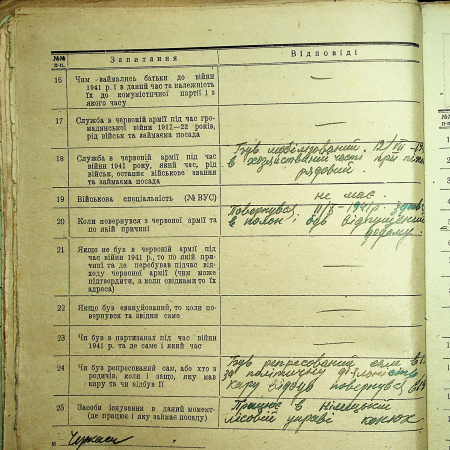 №№ п-п.
Запитання
Відповіді
16 Чим займались батьки до війни
1941 р. і в даний час та належність
їх до комуністичної партії і з
якого часу
17 Служба в червоній армії під час гро-
мадянської війни 1917—22 років,
рід військ та займаєма посада
18 Служба в червоній армії під час
війни 1941 року, який час, рід
військ, останнє військове звання
та займаєма посада
Був мобілізований, 12/VII
в хозяйственій часті при
рядовий
19 Військова спеціяльність (№ ВУС)
не має
20 Коли повернувся з червоної армії та
по якій причині
Повернувся
в полон, був відпущений
додому.
21 Якщо не був в червоній армії під
час війни 1941 р., то по якій при-
чині та де перебував підчас від-
ходу червоної армії (чим може
підтвердити, а коли свідками то їх
адреса)
22 Якщо був евакуйований, то коли по-
вернувся та звідки саме
23 Чи був в партизанах під час війни
1941 р. та де саме і який час
24 Чи був репресований сам, або хто з
родичів, коли і защо, яку мав
кару та чи відбув її
Був репресований сам в
за політичну
кару відбув повернувся
25 Засоби існування в даний момент-
(де працює і яку займає посаду)
Працює в Німецькій
лісовій управі конюх
м Черкаси